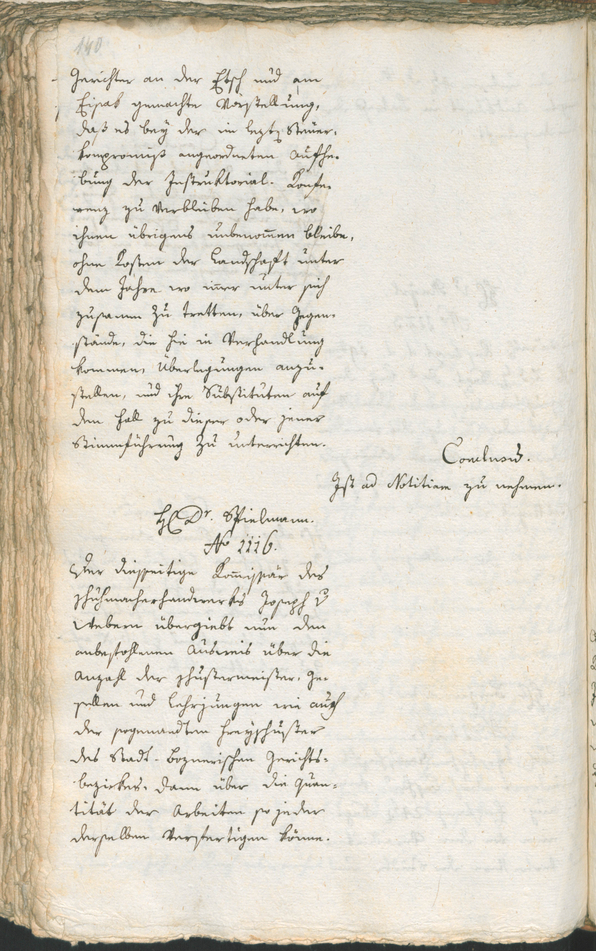 140
Gerichter an der Etsch und am
Eisak gemachte Vorstellung,
daß es bey der im lezt: Steuer-
kompromiß angeordneten Aufhe-
bung der Instruktorial-Konfe-
renz zu verbleiben habe, wo
ihnen übrigens unbenommen bleibe,
ohne Kosten der Landschaft unter
dem Jahre wo immer unter sich
zusamm zu tretten, über Gegen-
stände, die hie in Verhandlung
kommen, Überlegungen anzu-
stellen, und ihre Substituten auf
dem Fall zu dieser oder jener
Stimmführung zu unterrichten.
Conclusum.
Ist ad Notitiam zu nehmen.
H Dr. Spielmann.
No 1116.
Der diesseitige Kommissär des
Schuhmacherhandwerks Joseph v
Webern übergiebt nun den
anbefohlenen Ausweis über die
Anzahl der Schustermeister, Ge-
sellen und Lehrjungen wie auch
der sogenandten Freyschuster
des Stadt-Boznerischen Gerichts-
bezirkes, dann über die Quan-
tität der Arbeiten so jeder
derselben verfertigen könne.